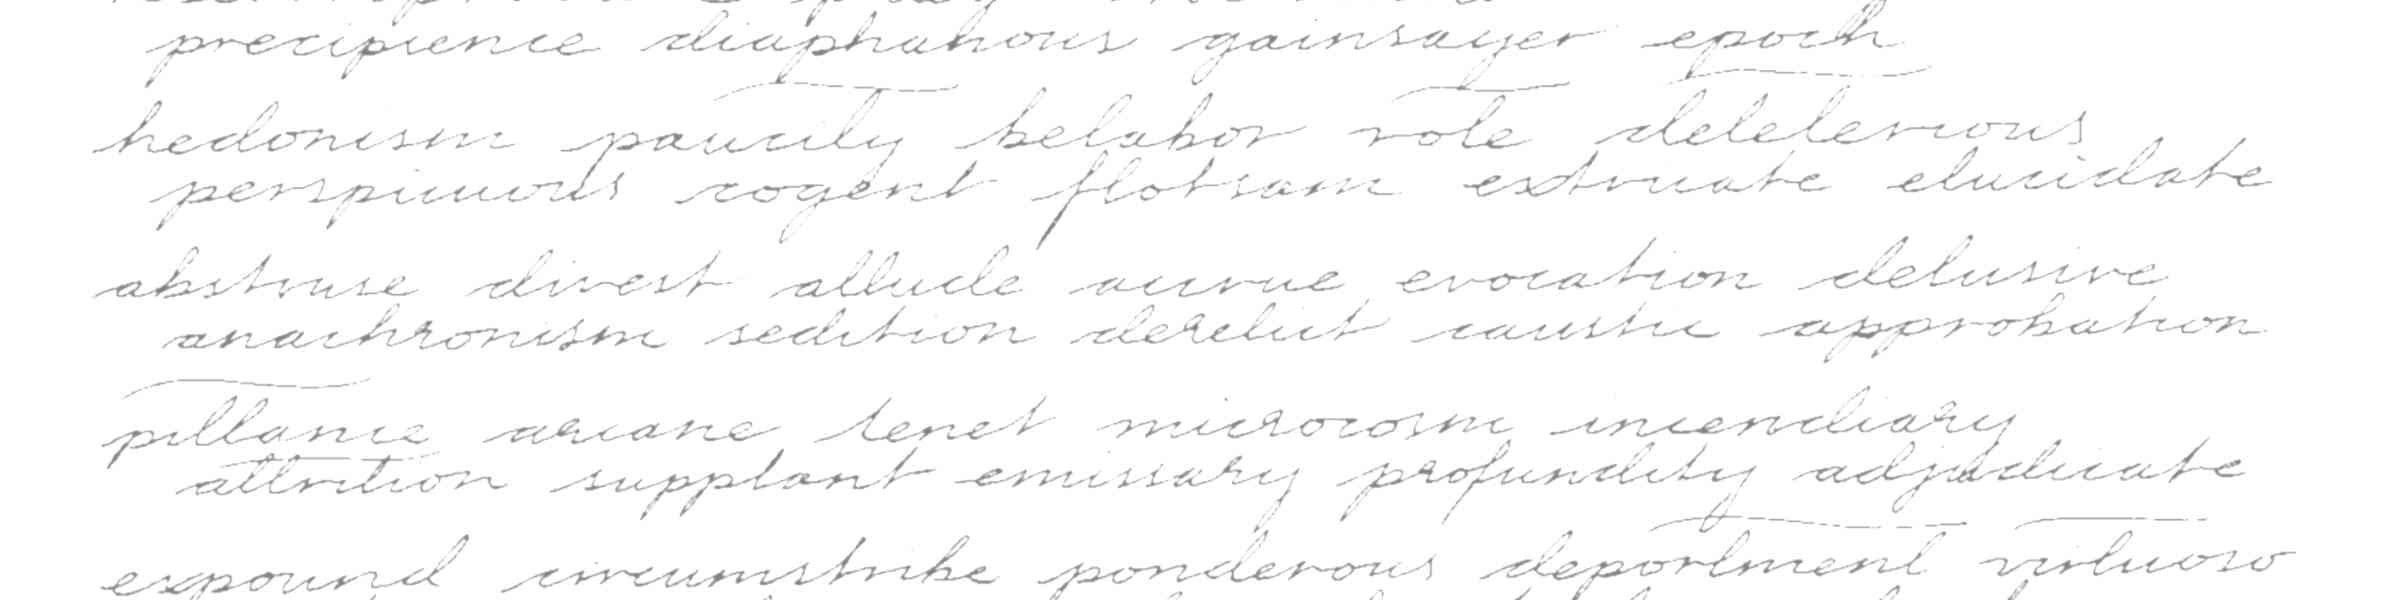 precipience diaphanous gainsayer epoch
hedonism paucity belabor rote deleterious
perspicuous cogent flotsam extricate elucidate
abstruse divest allude accrue evocation delusive
anachronism sedition derelict caustic approbation
pittance arcane tenet microcosm incendiary
attrition supplant emissary profundity adjudicate
expound circumstribe ponderous deportment virtuoso